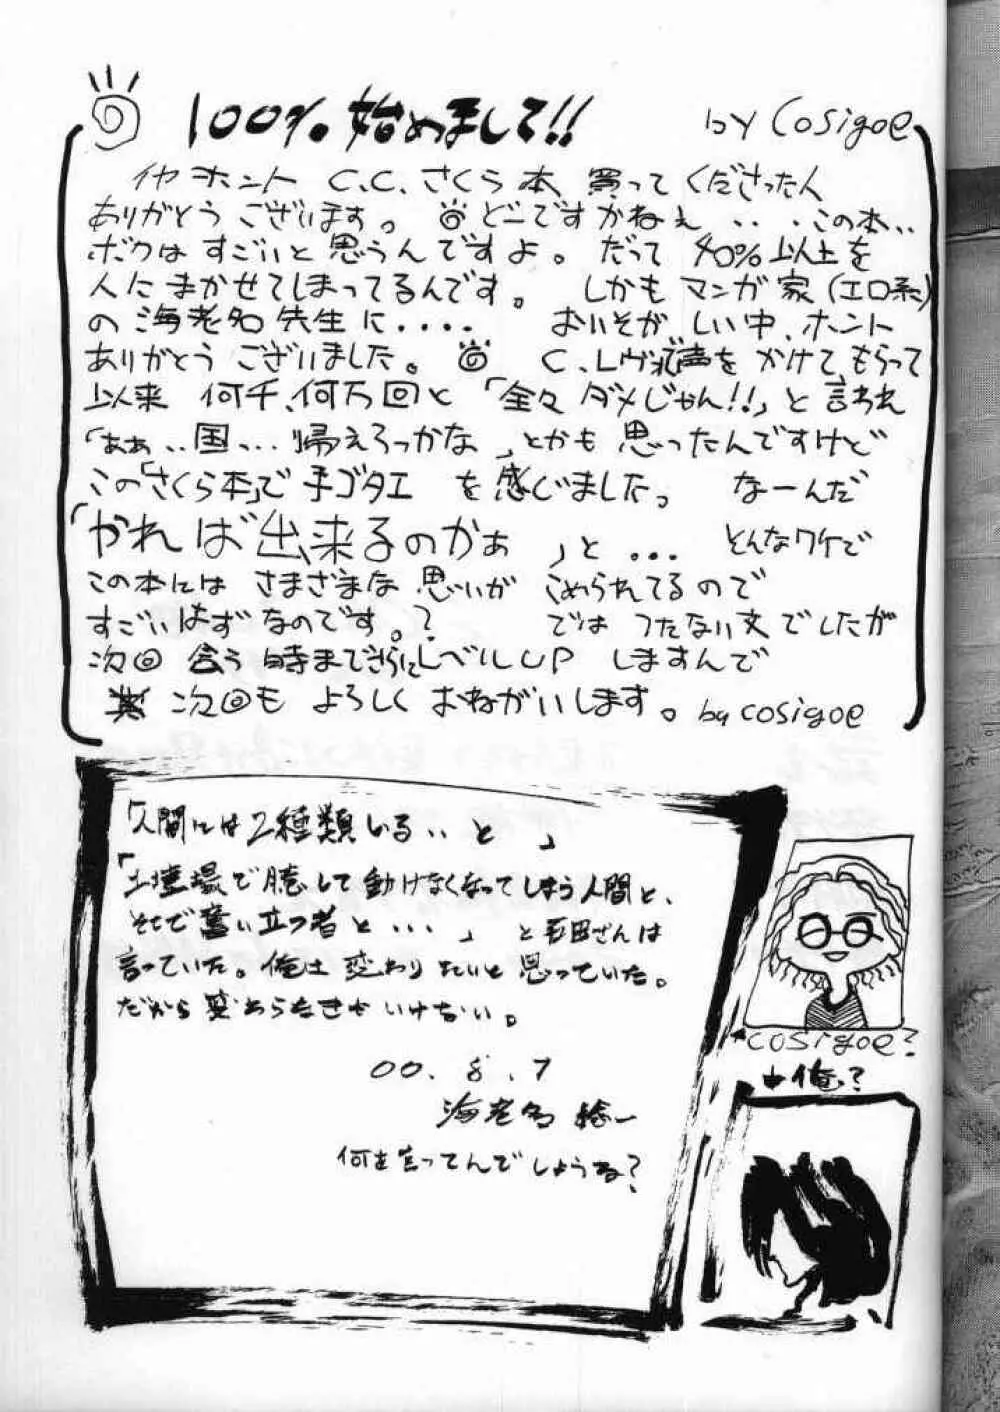 100% 始めまして!!
by Cosigoe
イヤ ホント C.C.さくら本、買って くださった人
ありがとう ございます。 どーですかねぇ・・・この本・・
ボクは すごいと 思うんですよ。 だって 40%以上を
人に まかせてしまってるんです。 しかも マンガ家(エロ系)
の 海老名先生に・・・・ おいそがしい中、ホント
ありがとう ございました。 C.レヴォで声を かけて もらって
以来 何千、何万回と「全々 ダメじゃん!!」と 言われ
「あぁ・・国っ・・・帰えろっかな」とかも 思ったんですけど
この「さくら本」で 手ゴタエ を 感じましたっ なーんだ
「やれば出来るのかぁ」と・・・ とんなワケで
この本には さまざまな 思いが こめられてるので
すごいはずなのです。? では つたない文でしたが
次回 会う時までさらにレベルUP しますんで
次回も よろしく おねがいします。 by cosigoe
「人間には2種類いる・・と」
「土壇場で臆して動けなくなってしまう人間と、
そこで奮い立つ者と・・・」 と石田さんは
言っていた。俺は変わりたいと思っていた。
だから変わらなきゃいけない。
00.8.7
海老名 稔一
何を言ってんでしょうね?
cosigoe?
俺?